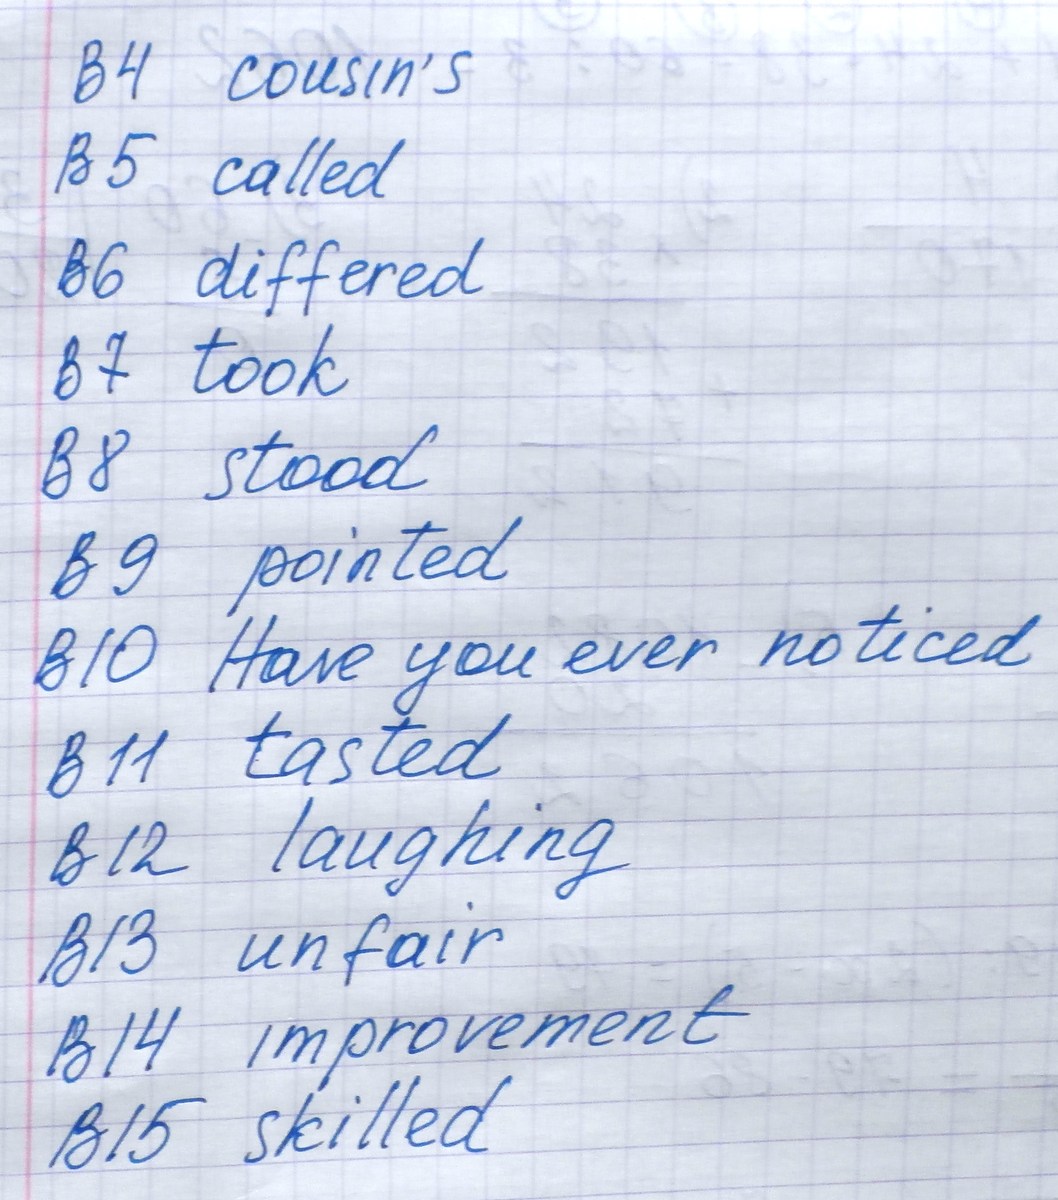 B4 cousin's
B5 called
B6 differed
B7 took
B8 stood
B9 pointed
B10 Have you ever noticed
B11 tasted
B12 laughing
B13 unfair
B14 improvement
B15 skilled